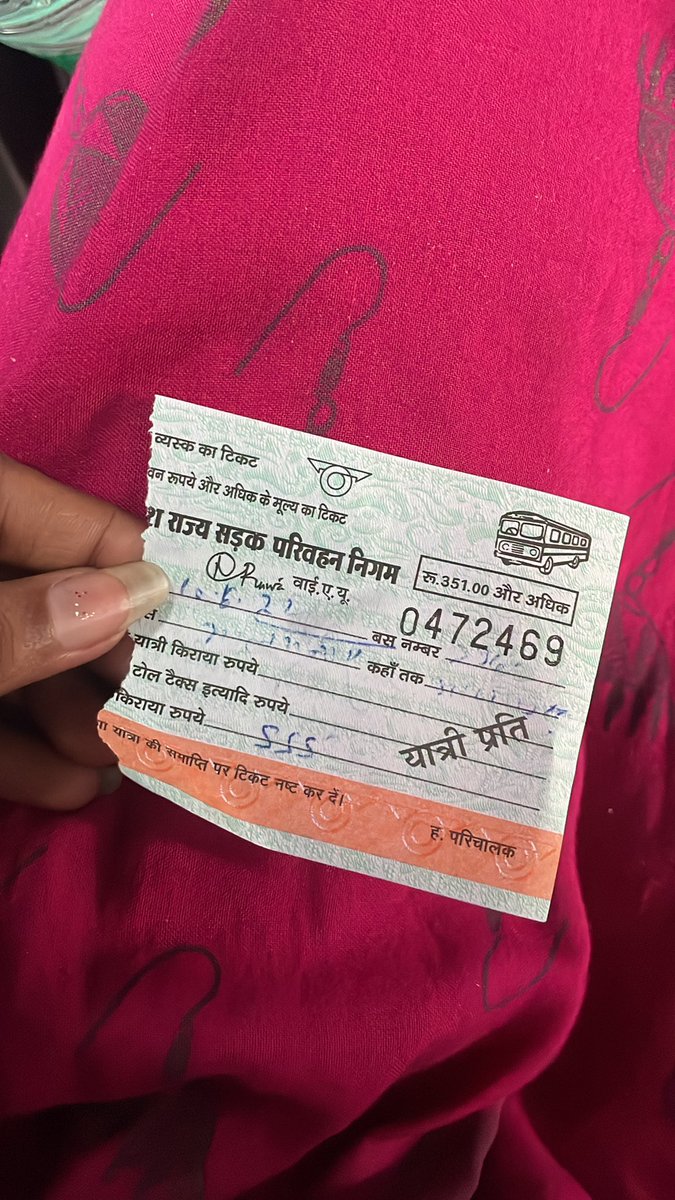 व्यस्क का टिकट
वन रुपये और अधिक के मूल्य का टिकट
श राज्य सड़क परिवहन निगम
वाई.ए.यू.
रू.351.00 और अधिक
0472469
बस नम्बर
कहाँ तक
यात्री किराया रुपये
टोल टैक्स इत्यादि रुपये
किराया रुपये 555
यात्री प्रति
यात्रा की समाप्ति पर टिकट नष्ट कर दें।
ह. परिचालक